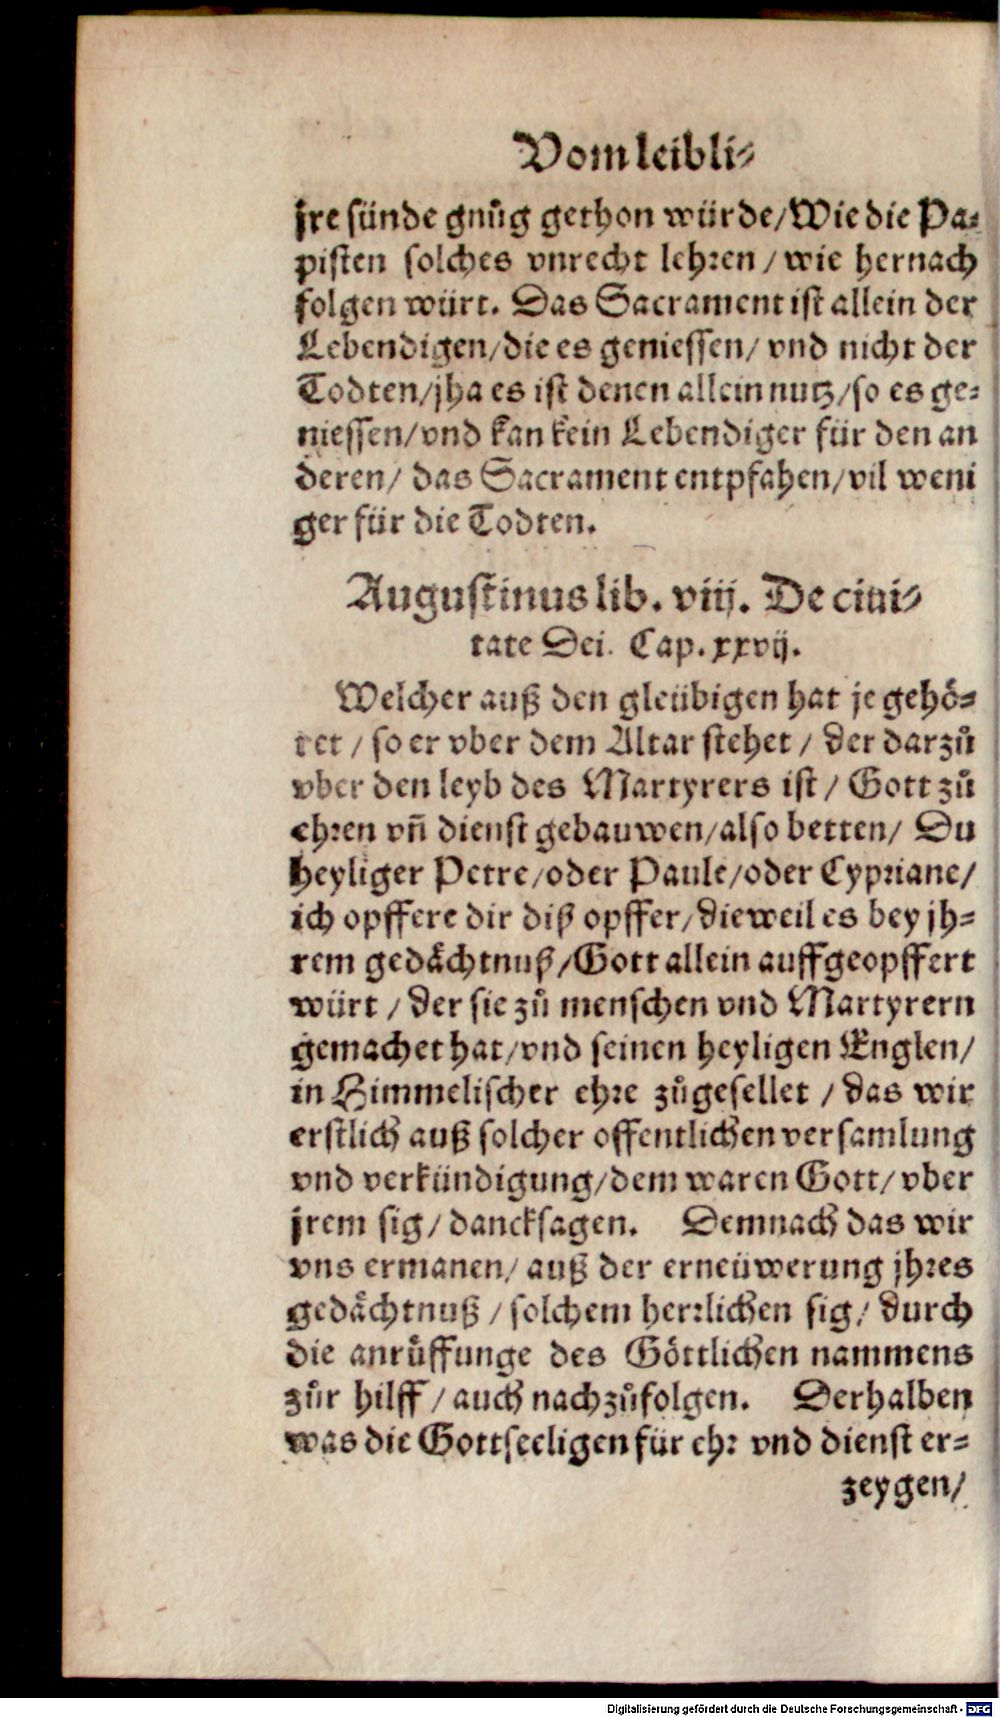 Vom leibli⸗
jre sünde gnůg gethon würde/Wie die Pa⸗
pisten solches vnrecht lehren/wie hernach
folgen würt. Das Sacrament ist allein der
Lebendigen/die es geniessen/vnd nicht der
Todten/jha es ist denen allein nutz/so es ge⸗
niessen/vnd kan kein Lebendiger für den an
deren/das Sacrament entpfahen/vil weni
ger für die Todten.
Augustinus lib. viij. De ciui⸗
tate Dei. Cap. xxvij.
Welcher auß den gleübigen hat je gehö⸗
ret/so er vber dem Altar stehet/der darzů
vber den leyb des Martyrers ist/Gott zů
ehren vñ dienst gebauwen/also betten/Du
heyliger Petre/oder Paule/oder Cypriane/
ich opffere dir diß opffer/dieweil es bey jh⸗
rem gedächtnuß/Gott allein auffgeopffert
würt/der sie zů menschen vnd Martyrern
gemachet hat/vnd seinen heyligen Englen/
in Himmelischer ehre zůgesellet/das wir
erstlich auß solcher offentlichen versamlung
vnd verkündigung/dem waren Gott/vber
jrem sig/dancksagen. Demnach das wir
vns ermanen/auß der erneüwerung jhres
gedächtnuß/solchem herrlichen sig/durch
die anrůffunge des Göttlichen nammens
zůr hilff/auch nachzůfolgen. Derhalben
was die Gottseeligen für ehr vnd dienst er⸗
zeygen/
Digitalisierung gefördert durch die Deutsche Forschungsgemeinschaft - DFG